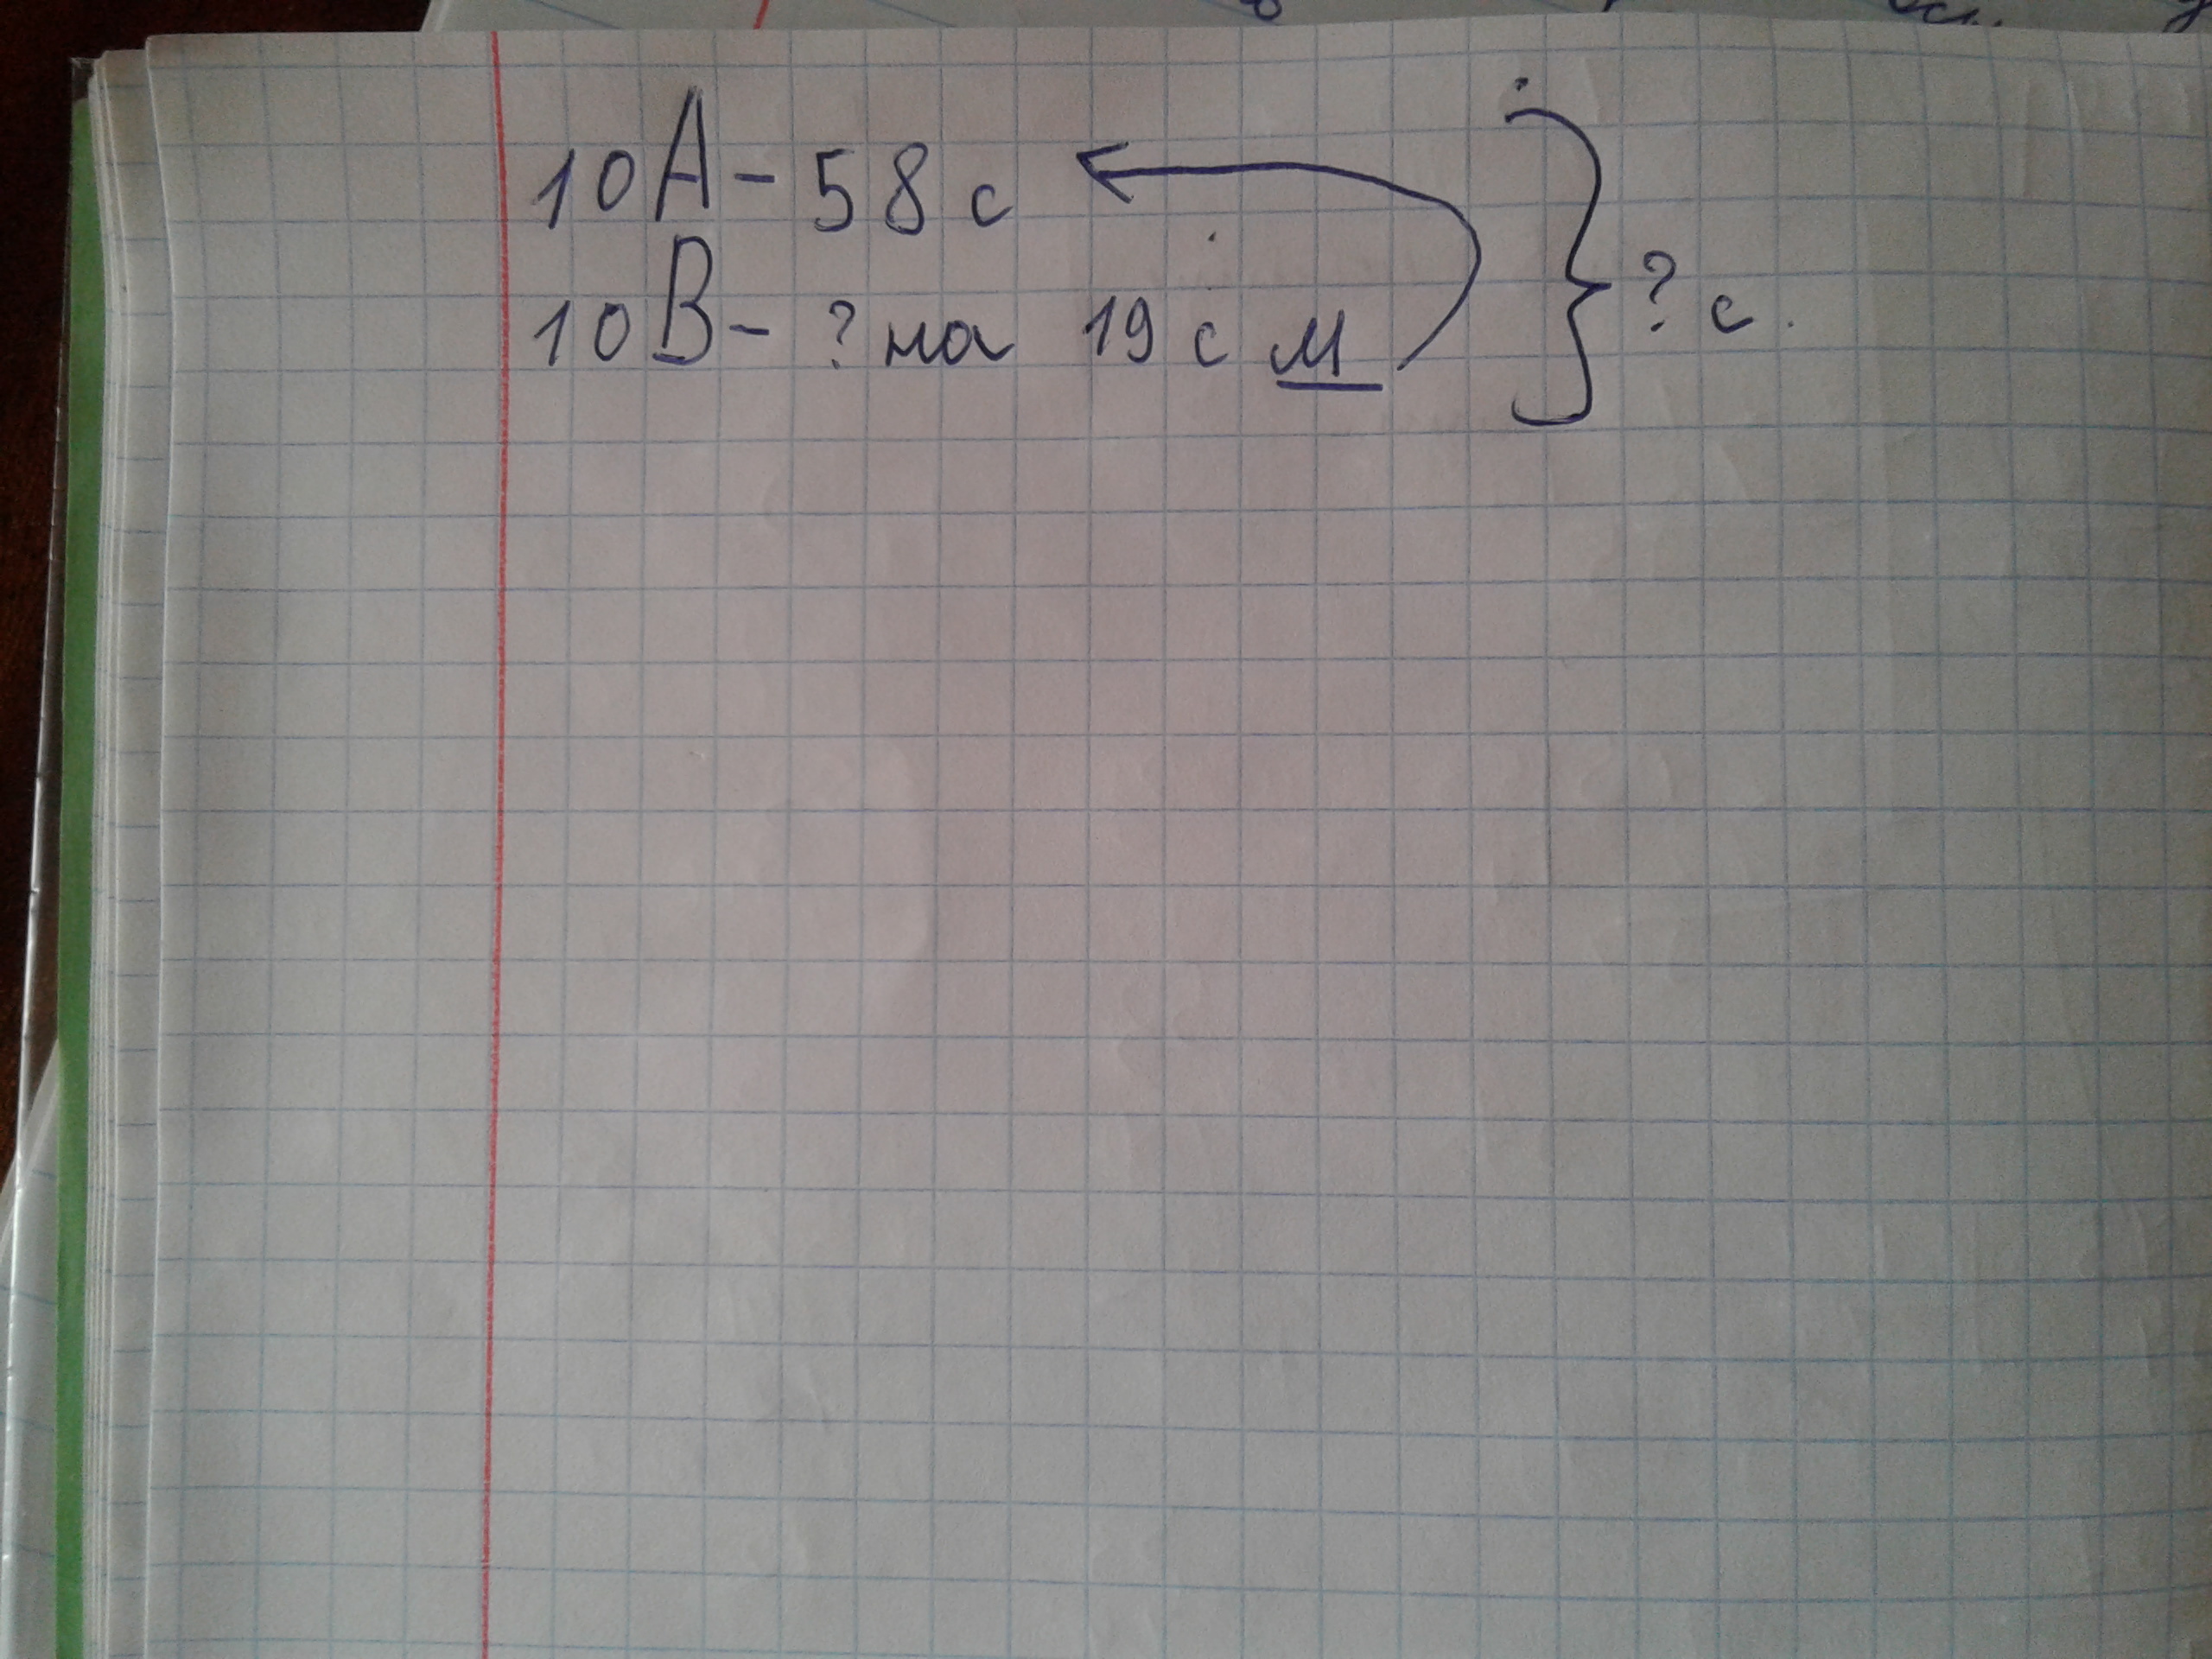 10А - 58 с
10В - ? на 19 с м
? с.